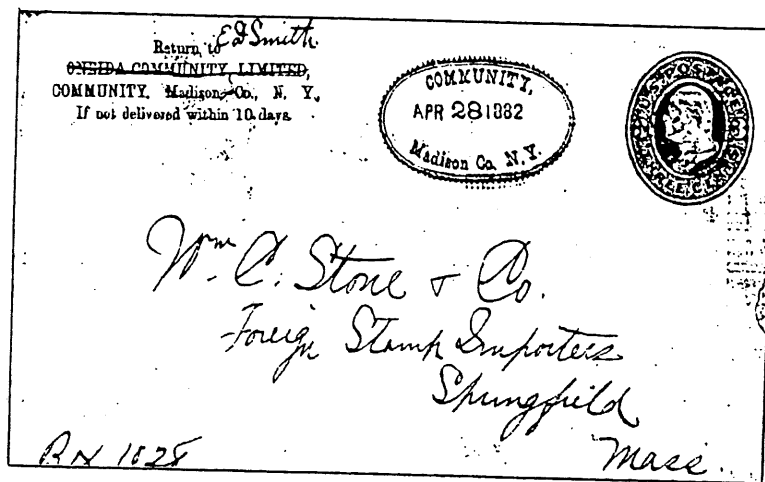 Return to E D Smith
ONEIDA COMMUNITY, LIMITED,
COMMUNITY, Madison Co., N. Y.
If not delivered within 10 days
COMMUNITY,
APR 28 1882
Madison Co, N.Y.
U.S. POSTAGE
THREE CENTS
Wm. C. Stone & Co.
Foreign Stamp Importers
Springfield
Mass.